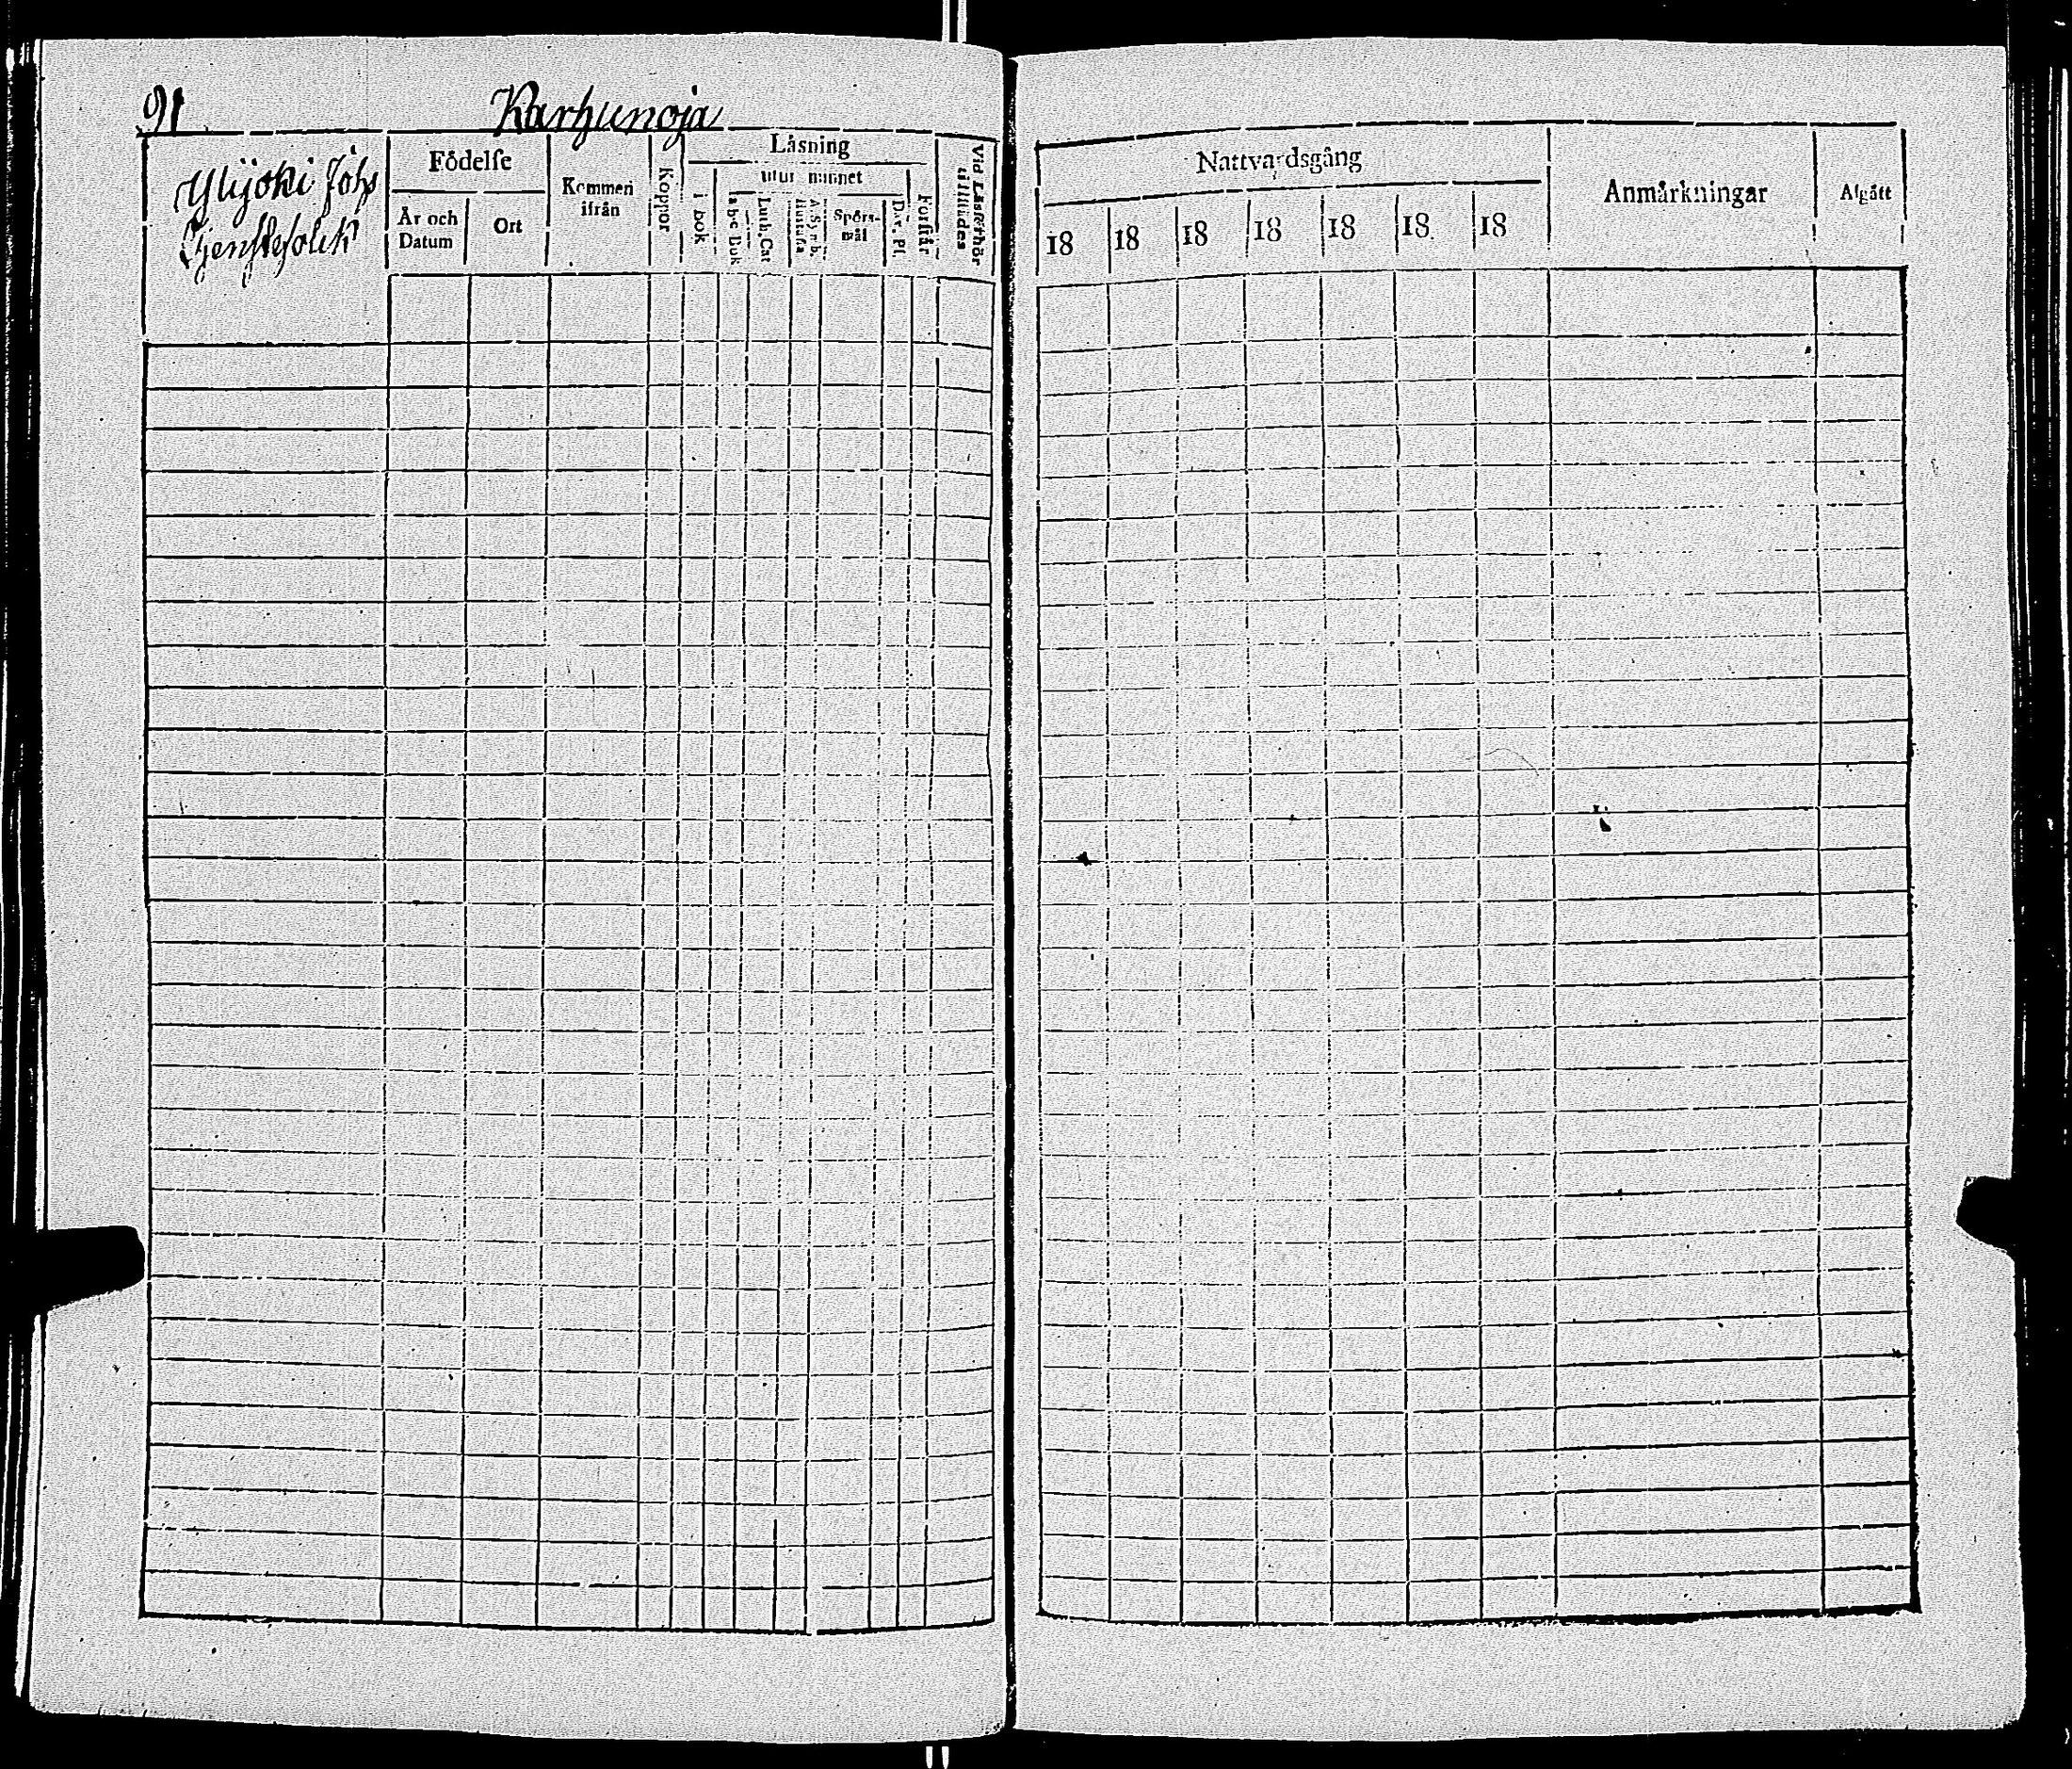 91 Karhunoja
Ylijoki Johs
Tjenstefolck
Födelse
År och
Datum
Ort
Kommen
ifrån
Koppor
Läsning
i bok
utur minnet
abc Bok
Luth. Cat
A. Symb.
Hustafla
Spörs-
mål
Dav. Ps.
Förstår
Vid Läsförhör
tillstädes
Nattvardsgång
18 18 18 18 18 18 18
Anmärkningar
Afgått